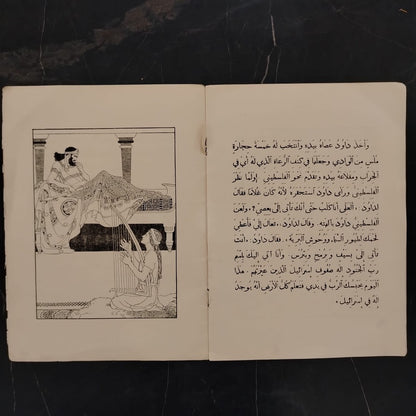 وَأَخَذَ دَاوُدُ عَصَاهُ بِيَدِهِ وَٱنْتَخَبَ لَهُ خَمْسَةَ حِجَارَةٍ
مُلْسٍ مِنَ ٱلْوَادِي وَجَعَلَهَا فِي كِنْفِ ٱلرُّعَاةِ ٱلَّذِي لَهُ أَيْ فِي
ٱلْجِرَابِ وَمِقْلَاعَهُ بِيَدِهِ وَتَقَدَّمَ نَحْوَ ٱلْفِلِسْطِينِيِّ
ٱلْفِلِسْطِينِيُّ وَرَأَى دَاوُدَ ٱسْتَحْقَرَهُ لِأَنَّهُ كَانَ غُلَامًا فَقَالَ
لِدَاوُدَ. أَلَعَلِّي أَنَا كَلْبٌ حَتَّى أَنَّكَ تَأْتِي إِلَيَّ بِعِصِيٍّ؟ وَلَعَنَ
ٱلْفِلِسْطِينِيُّ دَاوُدَ بِآلِهَتِهِ. وَقَالَ لِدَاوُدَ. تَعَالَ إِلَيَّ فَأُعْطِيَ
لَحْمَكَ لِطُيُورِ ٱلسَّمَاءِ وَوُحُوشِ ٱلْبَرِّيَّةِ. فَقَالَ دَاوُدُ. أَنْتَ
تَأْتِي إِلَيَّ بِسَيْفٍ وَبِرُمْحٍ وَبِتُرْسٍ. وَأَنَا آتِي إِلَيْكَ بِٱسْمِ
رَبِّ ٱلْجُنُودِ إِلٰهِ صُفُوفِ إِسْرَائِيلَ ٱلَّذِينَ عَيَّرْتَهُمْ. هٰذَا
ٱلْيَوْمَ يَحْبِسُكَ ٱلرَّبُّ فِي يَدِي فَتَعْلَمُ كُلُّ ٱلْأَرْضِ أَنَّهُ يُوجَدُ
إِلٰهٌ فِي إِسْرَائِيلَ.